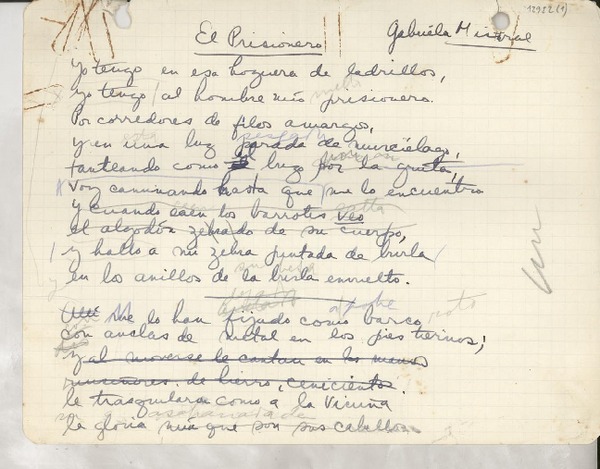 12922(1)
El Prisionero Gabriela Mistral
Yo tengo en esa hoguera de ladrillos,
yo tengo al hombre mío prisionero.
Por corredores de filos amargos,
y en una luz parada de murciélago,
tanteando como el buzo por la gruta,
voy caminando hasta que me lo encuentro
y cuando caen los barrotes veo
el algodón zebrado de su cuerpo,
y hallo a mi zebra pintada de burla
en los anillos de la burla envuelto.
Me lo han fijado como barco
con anclas de metal en los pies tiernos;
y al moverse le cantan en las manos
de hierro, cenicientos.
le trasquilaron como a la vicuña
la gloria mía que son sus cabellos